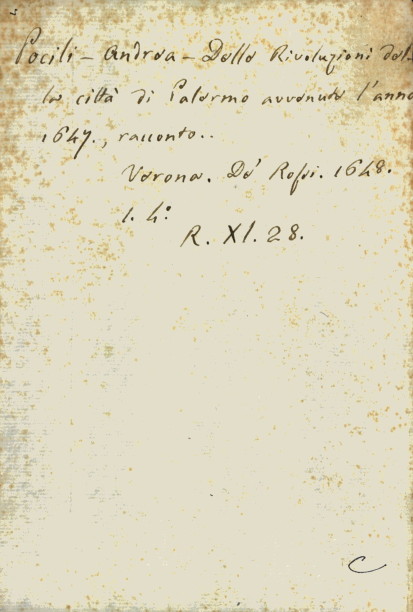 Pocili - Andrea - Delle Rivoluzioni del
la città di Palermo avvenute l'anno
1647., racconto..
Verona. De' Rossi. 1648.
1. 4.º
R. XI. 28.
C